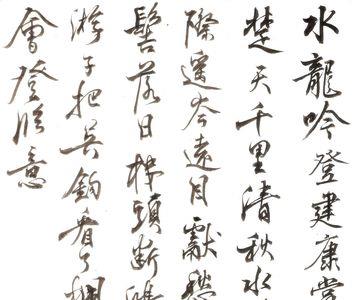 水龍吟登建康賞
楚天千里清秋水
際遥岑遠目獻愁
髻落日樓頭斷鴻
游子把吴鈎看了欄
會登臨意